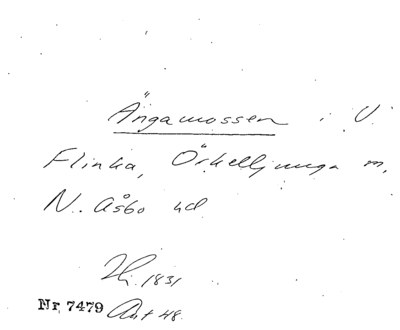 Ängamossen i V.
Flinka, Örkelljunga m,
N. Åsbo hd
1831
Nr 7479 Ant 48.